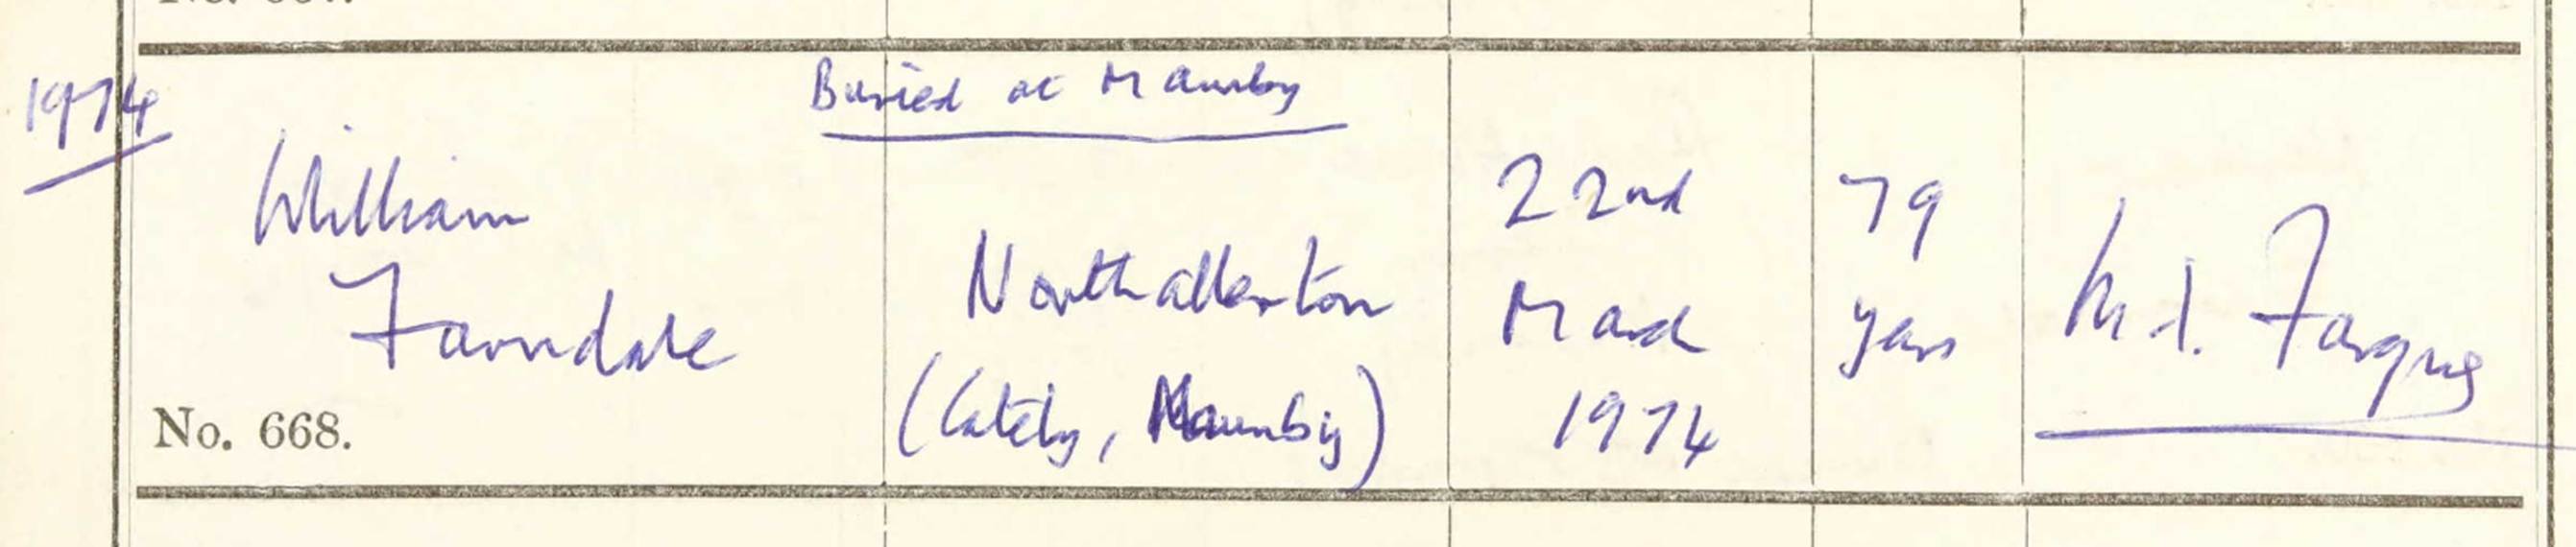 1974
Buried at Maunby
William
Farndale
Northallerton
(Lately, Maunby)
22nd
March
1974
79
years
M. I. Fargus
No. 668.